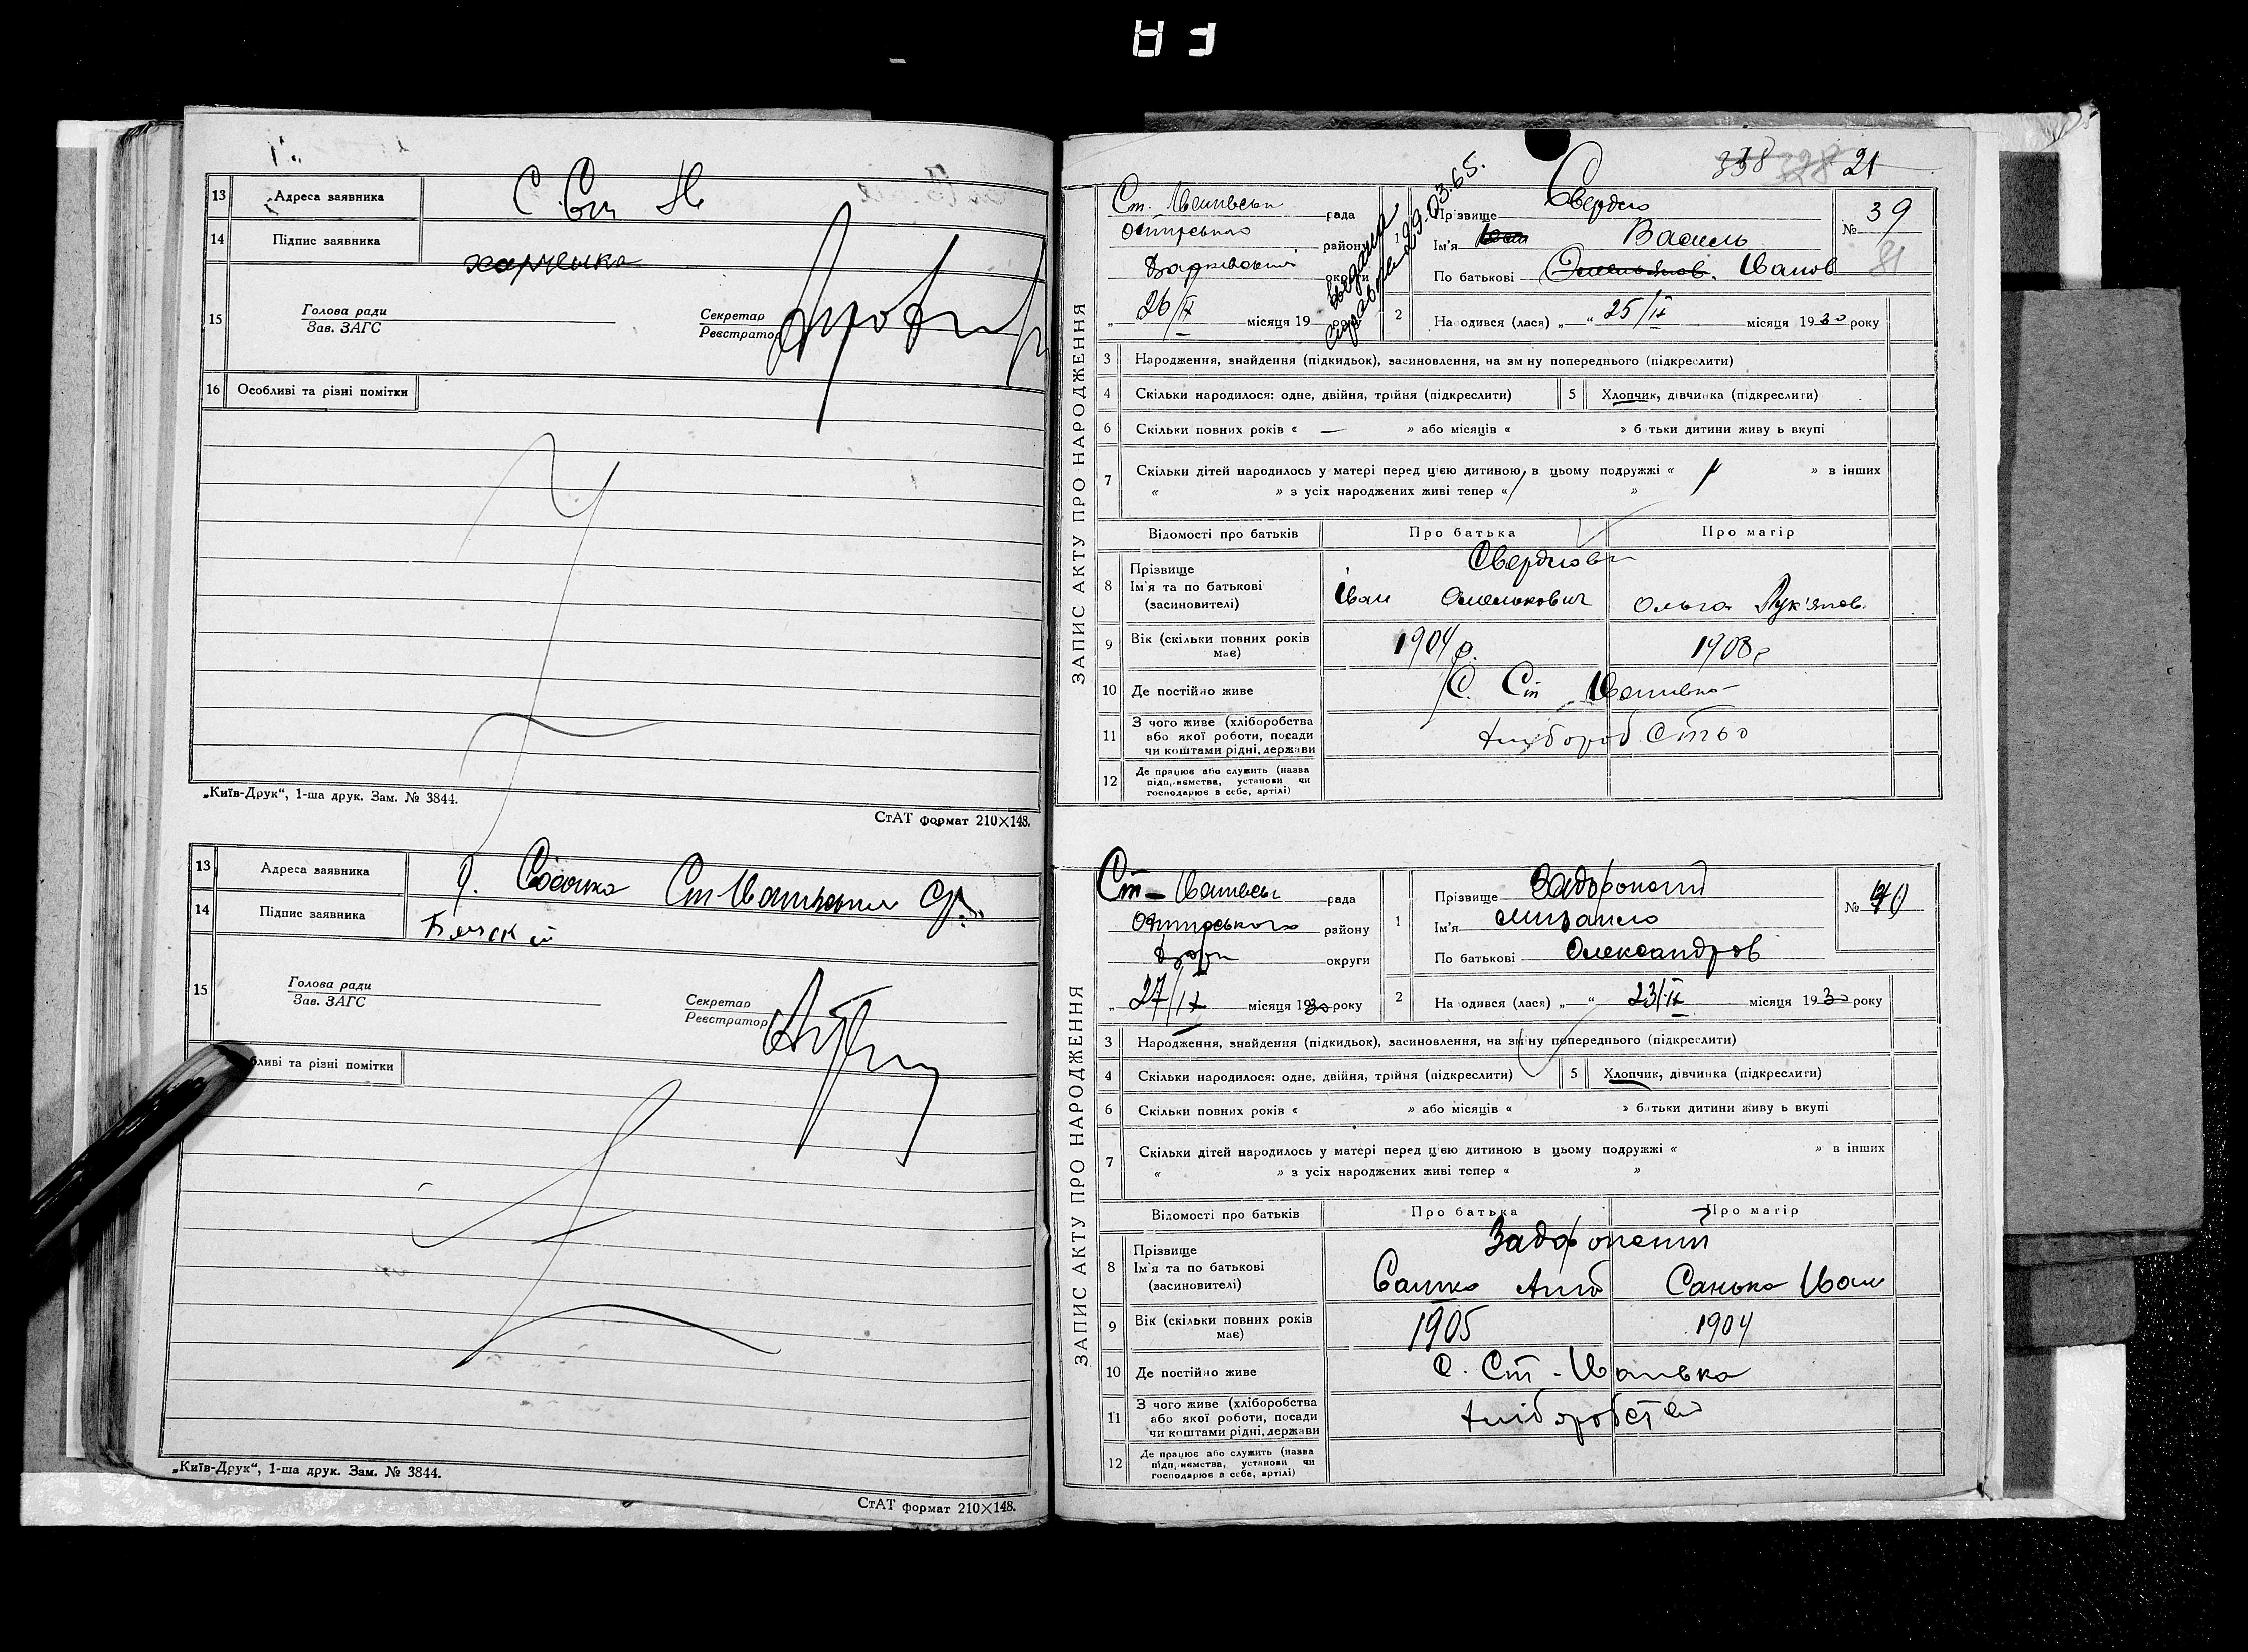 13 Адреса заявника С.
14 Підпис заявника
харченко
15 Голова ради
Зав. ЗАГС
Секретар
Реєстратор
16 Особливі та різні помітки
„Київ-Друк“, 1-ша друк. Зам. № 3844.
СтАТ формат 210×148.
13 Адреса заявника
14 Підпис заявника
15 Голова ради
Зав. ЗАГС
Секретар
Реєстратор
бливі та різні помітки
„Київ-Друк“, 1-ша друк. Зам. № 3844.
СтАТ формат 210×148.
338 398 21
29.03.65.
ЗАПИС АКТУ ПРО НАРОДЖЕННЯ
Ст. Іванівськ рада
району
округи
26/IX місяця 19 року
1 Прізвище Свердло
Ім'я Василь
По батькові Іванов
№ 39
81
2 На одився (лася) „—“ 25/IX місяця 1930 року
3 Народження, знайдення (підкидьок), засиновлення, на зм ну попереднього (підкреслити)
4 Скільки народилося: одне, двійня, трійня (підкреслити)
5 Хлопчик, дівчинка (підкреслити)
6 Скільки повних років « — » або місяців « » б тьки дитини живу ь вкупі
7 Скільки дітей народилось у матері перед цією дитиною в цьому подружжі « » в інших
« » з усіх народжених живі тепер « »
Відомості про батьків Про батька Про матір
8 Прізвище
Ім'я та по батькові
(засиновителі)
Свердлови
Іван Омелькович Ольга Лук'янов.
9 Вік (скільки повних років має) 1904 р. 1908 р
10 Де постійно живе С. Ст Іванівка
11 З чого живе (хліборобства або якої роботи, посади чи коштами рідні, держави хліборобство
12 Де працює або служить (назва підприємства, установи чи господарює в себе, артілі)
ЗАПИС АКТУ ПРО НАРОДЖЕННЯ
Ст-Іванівськ рада
району
округи
27/IX місяця 1930 року
1 Прізвище
Ім'я Михайло
По батькові Олександров
№ 40
2 На одився (лася) „—“ 23/IX місяця 1930 року
3 Народження, знайдення (підкидьок), засиновлення, на зміну попереднього (підкреслити)
4 Скільки народилося: одне, двійня, трійня (підкреслити)
5 Хлопчик, дівчинка (підкреслити)
6 Скільки повних років « » або місяців « » батьки дитини живу ь вкупі
7 Скільки дітей народилось у матері перед цією дитиною в цьому подружжі « » в інших
« » з усіх народжених живі тепер « »
Відомості про батьків Про батька Про матір
8 Прізвище
Ім'я та по батькові
(засиновителі)
Сашко Санька Іван
9 Вік (скільки повних років має) 1905 1904
10 Де постійно живе С. Ст-Іванівка
11 З чого живе (хліборобства або якої роботи, посади чи коштами рідні, держави хліборобство
12 Де працює або служить (назва підприємства, установи чи господарює в себе, артілі)